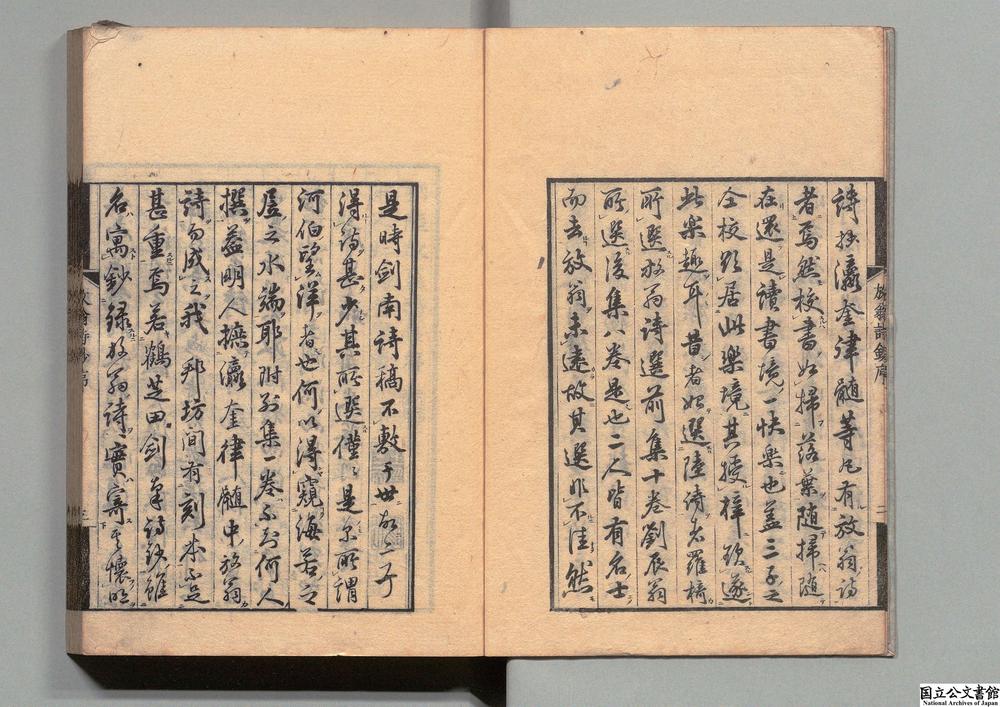 詩抄瀛奎律髓等凡有放翁詩
者焉然校書如掃落葉随掃随
在還是讀書境一快樂也蓋三子之
全校欵居此樂境其授梓欲遂
此樂趣耳昔者始選陸詩者羅椅
所選放翁詩選前集十卷劉辰翁
所選後集八卷是也二人皆有名士
而去放翁未遠故其選非不佳然
是時劍南詩稿不敷于世故二子
得詩甚少其所選僅々是亦所謂
河伯望洋者也何以得窺海若之
居之水端耶附別集一卷不知何人
撰蓋明人摭瀛奎律髓中放翁
詩而成之我邦坊間有刻本不足
甚重焉若鶴芝田劍南詩鈔雖
名寓鈔録放翁詩實寄其懷明
放翁詩鈔序
二
三
国立公文書館
National Archives of Japan